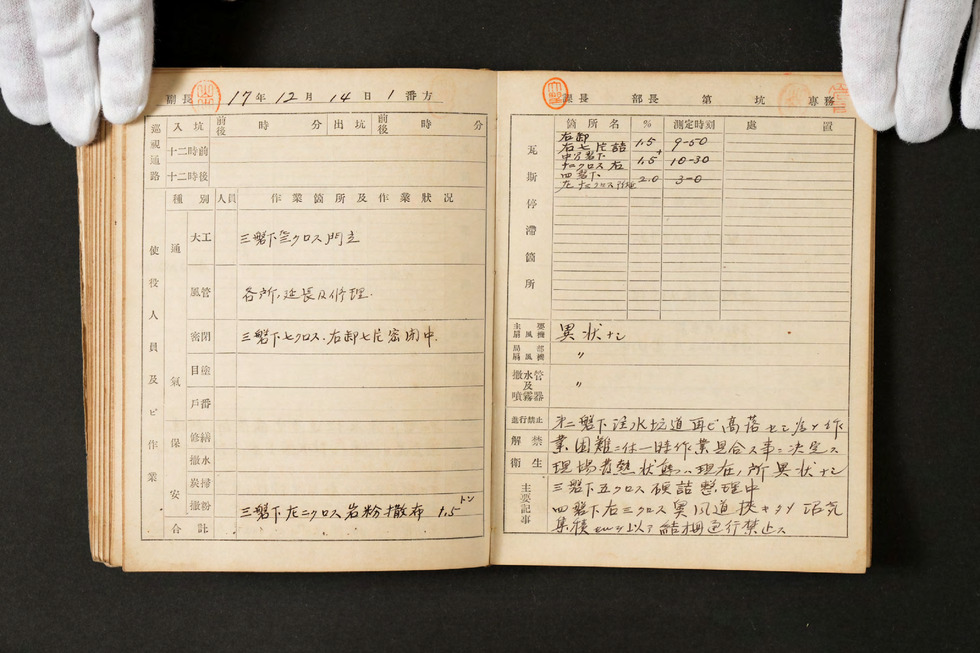 副長 17年 12月 14日 1番方
巡視通路
入坑 前後 時 分 出坑 前後 時 分
十二時前
十二時後
使役人員及ビ作業
種別 人員 作業箇所及作業狀况
通氣
大工 三盤下 クロス門立
風管 各所、延長及修理.
密閉 三盤下七クロス.右卸七片密閉中.
目塗
戸番
保安
修繕
撒水
炭掃
撒粉 三盤下左二クロス岩粉撒布 1.5トン
合計
課長 部長 第 坑 専務
瓦斯停滯箇所
箇所名 % 測定時刻 處置
右卸
右七片詰 1.5 9-50
クロス右 1.5 10-30
四盤下
2.0 3-0
主要扇風機 異状ナシ
局部扇風機 〃
撒水管及噴霧器 〃
進行禁止
解禁
衛生
主要記事
第二盤下注水坑道再ビ高落
業困難ニ付一時作業見合ス事ニ決定ス
現場發熱状態ハ現在ノ所異状ナシ
三盤下五クロス硬詰整理中
四盤下右三クロス奥風道狭キタメ
以下 通行禁止ス